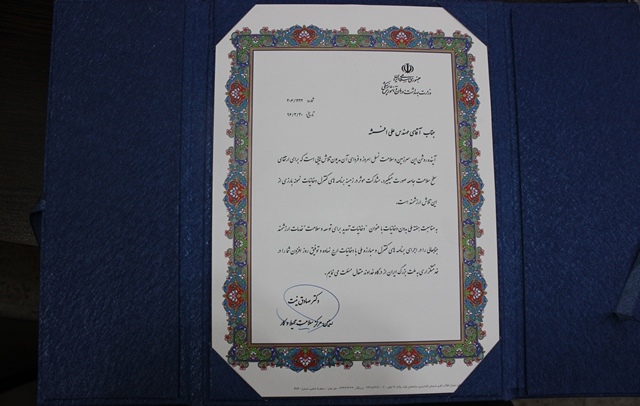 جمهوری اسلامی ایران
وزارت بهداشت، درمان و آموزش پزشکی
شماره
تاریخ ۹۶/۳/۲۰
جناب آقای مهندس علی
آینده روشن این سرزمین و سلامت نسل امروز و فردای آن مدیون تلاش هایی است که برای ارتقای
سطح سلامت جامعه صورت میگیرد. مشارکت موثر در زمینه برنامه های کنترل دخانیات نمونه بارزی از
این تلاش ارزشمند است.
به مناسبت هفته ملی بدون دخانیات با عنوان "دخانیات تهدیدی برای توسعه و سلامت" خدمات ارزشمند
جنابعالی را در اجرای برنامه های کنترل و مبارزه ملی با دخانیات ارج نهاده و توفیق روز افزون شما را در
خدمتگزاری به ملت بزرگ ایران از درگاه خداوند متعال مسئلت می نمایم.
دکتر صادق نیت
رییس مرکز سلامت محیط و کار